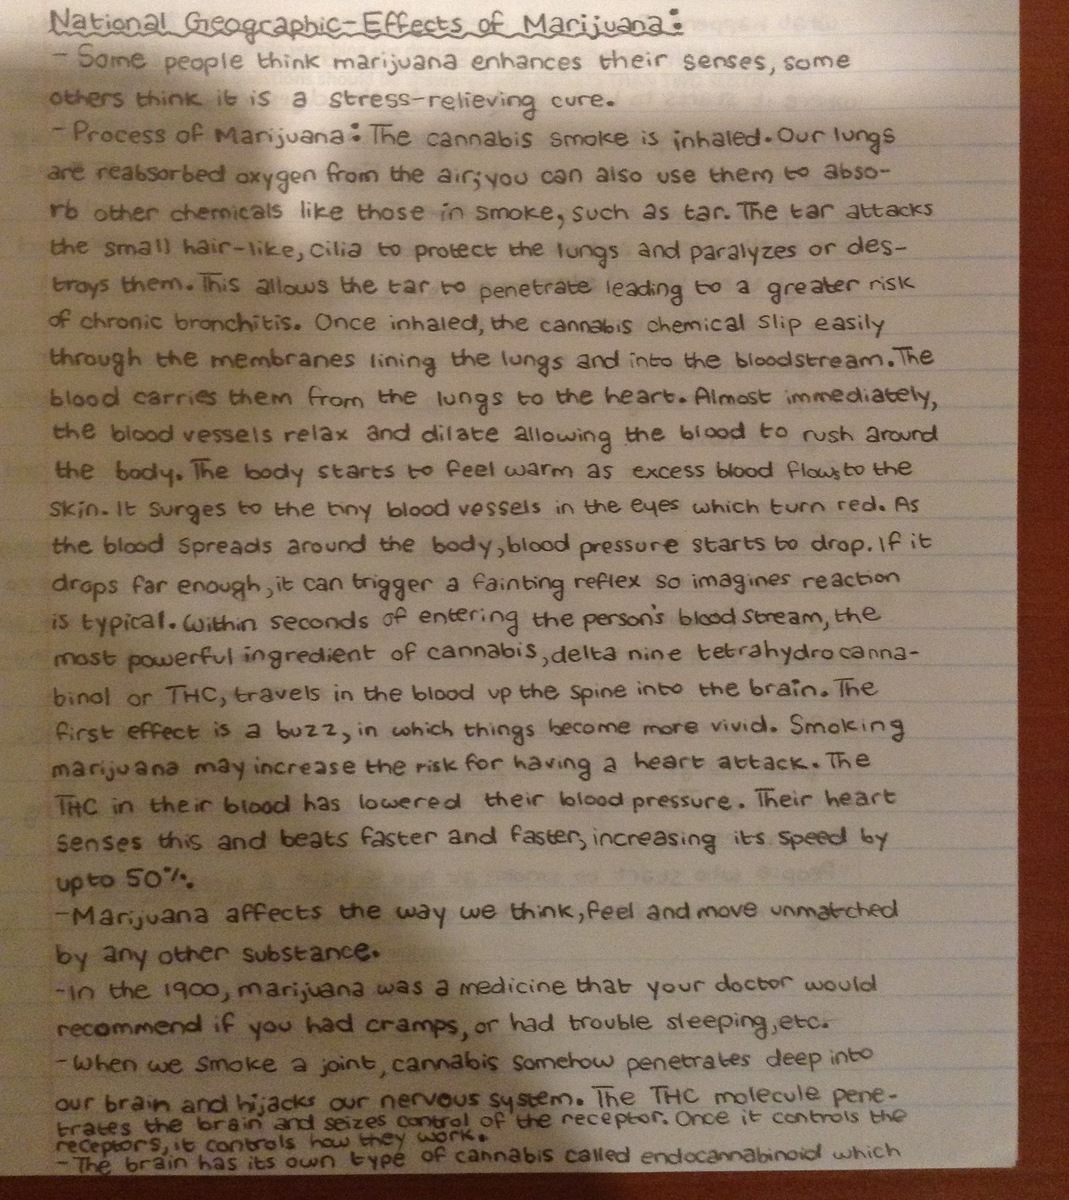 National Geographic-Effects of Marijuana:
- Some people think marijuana enhances their senses, some
others think it is a stress-relieving cure.
- Process of Marijuana: The cannabis smoke is inhaled. Our lungs
are reabsorbed oxygen from the air; you can also use them to abso-
rb other chemicals like those in smoke, such as tar. The tar attacks
the small hair-like, cilia to protect the lungs and paralyzes or des-
troys them. This allows the tar to penetrate leading to a greater risk
of chronic bronchitis. Once inhaled, the cannabis chemical slip easily
through the membranes lining the lungs and into the bloodstream. The
blood carries them from the lungs to the heart. Almost immediately,
the blood vessels relax and dilate allowing the blood to rush around
the body. The body starts to feel warm as excess blood flows to the
skin. It surges to the tiny blood vessels in the eyes which turn red. As
the blood spreads around the body, blood pressure starts to drop. If it
drops far enough, it can trigger a fainting reflex so imagines reaction
is typical. Within seconds of entering the person's blood stream, the
most powerful ingredient of cannabis, delta nine tetrahydrocanna-
binol or THC, travels in the blood up the spine into the brain. The
first effect is a buzz, in which things become more vivid. Smoking
marijuana may increase the risk for having a heart attack. The
THC in their blood has lowered their blood pressure. Their heart
senses this and beats faster and faster, increasing its speed by
up to 50%.
- Marijuana affects the way we think, feel and move unmatched
by any other substance.
- In the 1900, marijuana was a medicine that your doctor would
recommend if you had cramps, or had trouble sleeping, etc.
- When we smoke a joint, cannabis somehow penetrates deep into
our brain and hijacks our nervous system. The THC molecule pene-
trates the brain and seizes control of the receptor. Once it controls the
receptors, it controls how they work.
- The brain has its own type of cannabis called endocannabinoid which